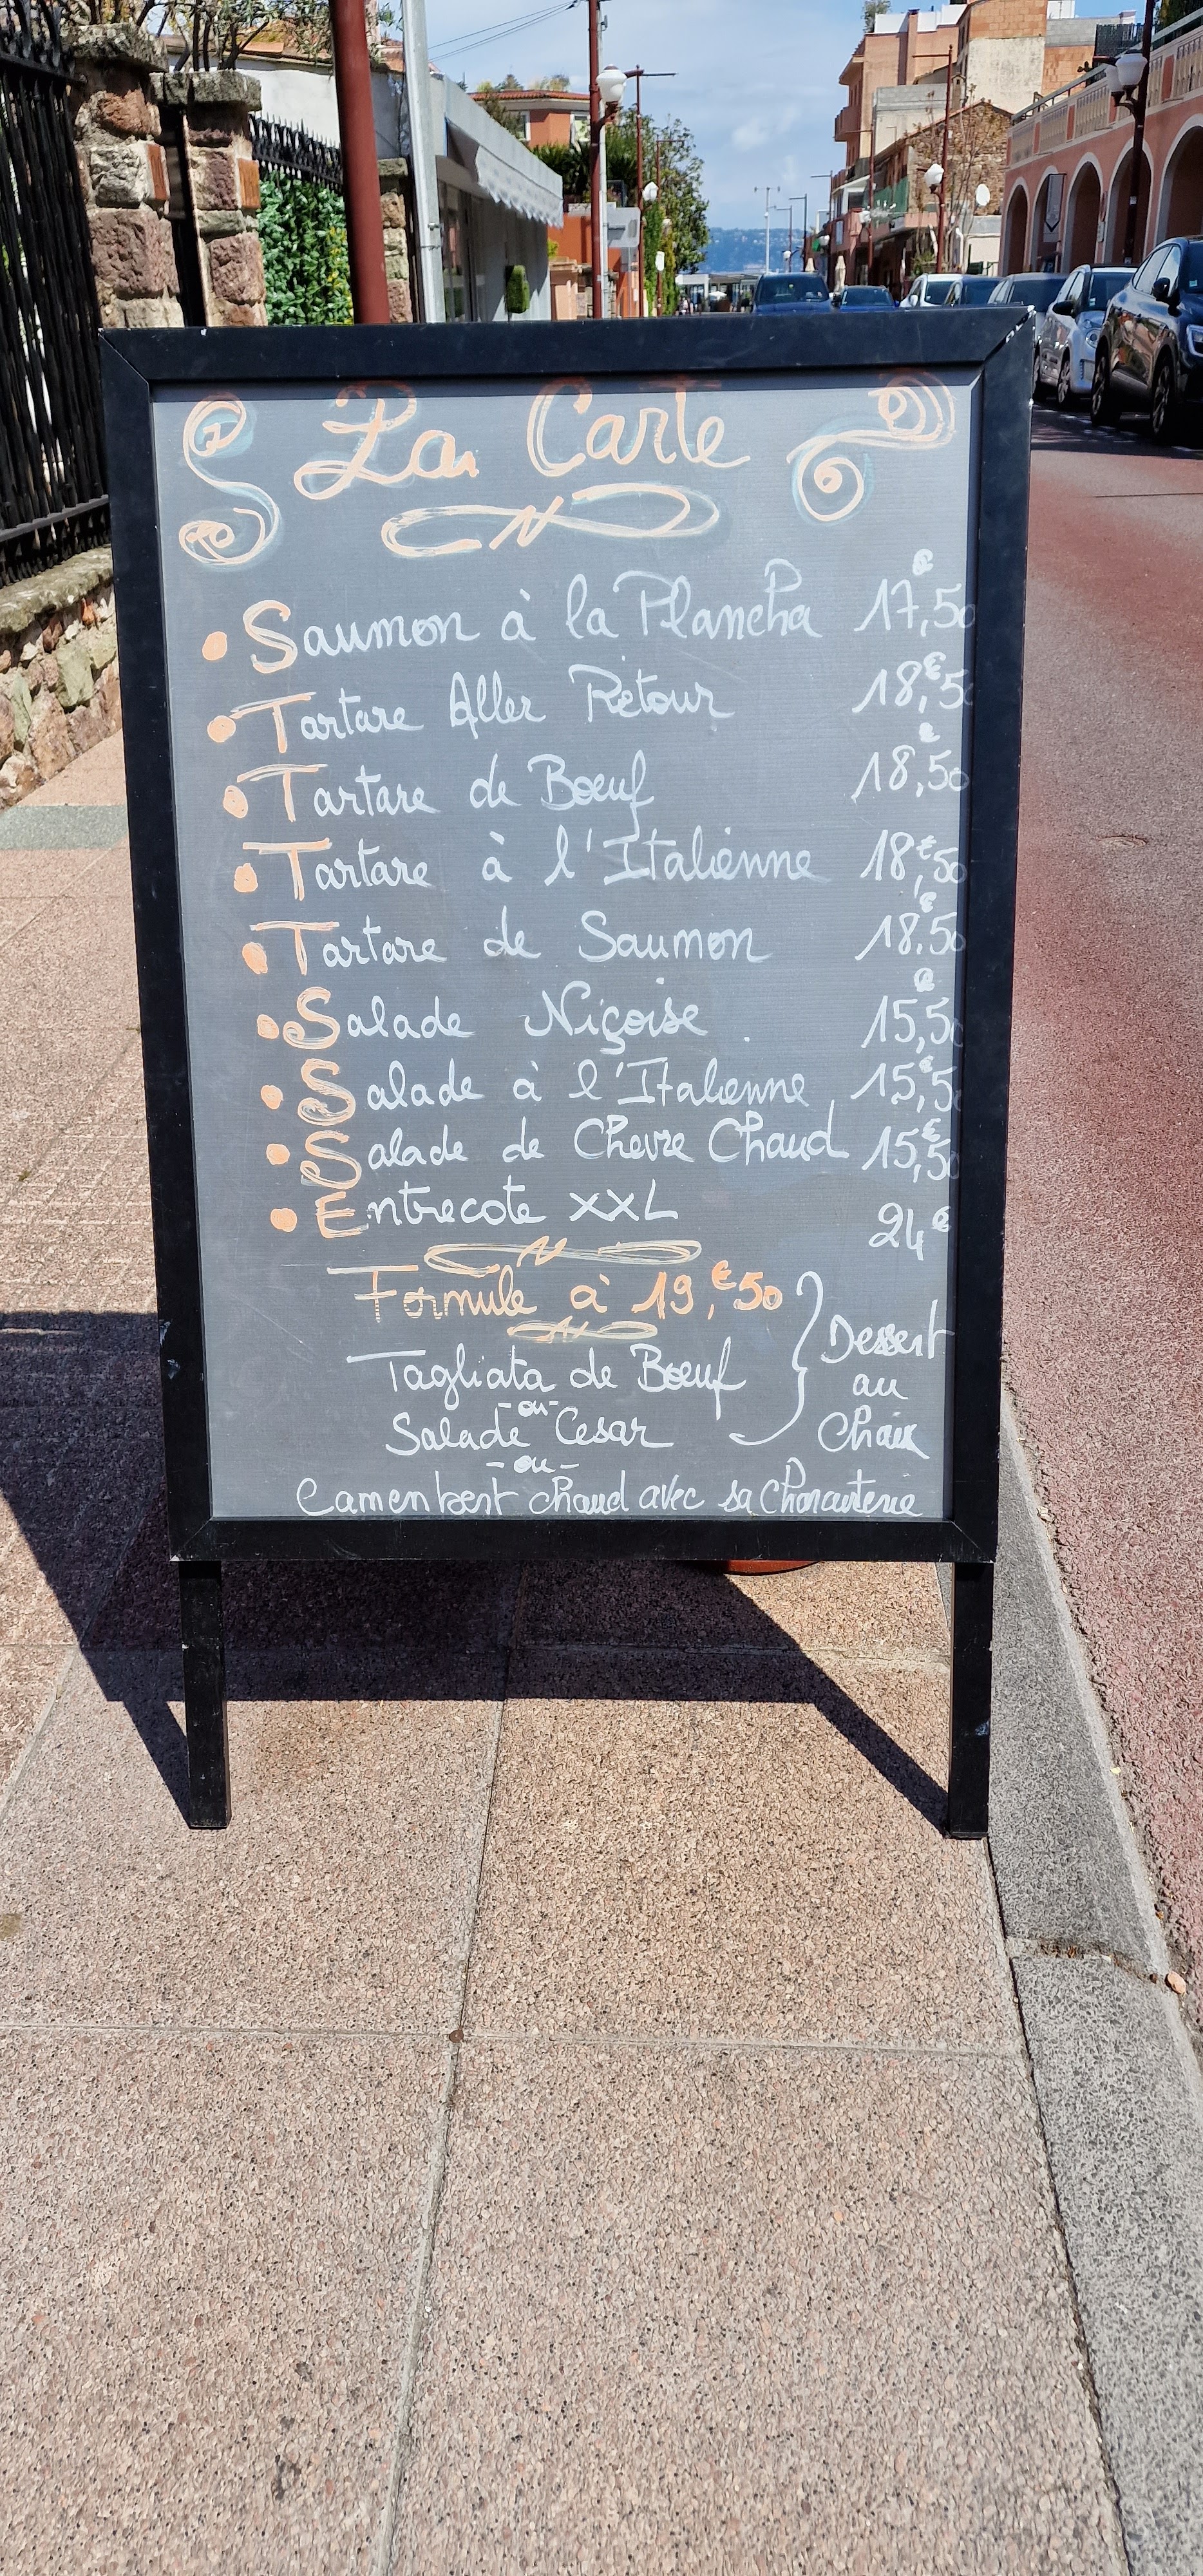 La Carte
• Saumon à la Plancha 17,€50
• Tartare Aller Retour 18,€50
• Tartare de Boeuf 18,€50
• Tartare à l'Italienne 18,€50
• Tartare de Saumon 18,€50
• Salade Niçoise 15,€50
• Salade à l'Italienne 15,€50
• Salade de Chevre Chaud 15,€50
• Entrecote XXL 24€
Formule à 19,€50
Tagliata de Boeuf
-ou-
Salade Cesar
-ou-
Camembert chaud avec sa Charcuterie
Dessert
au
Choix